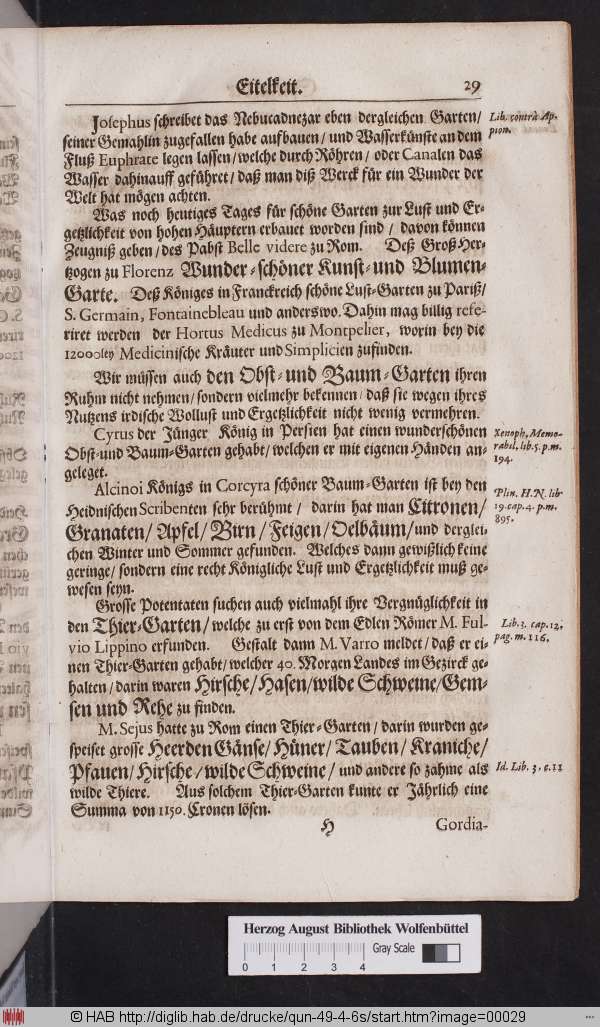 Eitelkeit. 29
Josephus schreibet das Nebucadnezar eben dergleichen Garten/
seiner Gemahlin zugefallen habe aufbauen/ und Wasserkünste an dem
Fluß Euphrate legen lassen/ welche durch Röhren/ oder Canalen das
Wasser dahinauff geführet/ daß man diß Werck für ein Wunder der
Welt hat mögen achten.
Lib. contrà Ap-
pion.
Was noch heutiges Tages für schöne Garten zur Lust und Er-
getzlichkeit von hohen Häuptern erbauet worden sind/ davon können
Zeugniß geben/ des Pabst Belle videre zu Rom. Deß Groß-Her-
tzogen zu Florenz Wunder-schöner Kunst-und Blumen-
Garte. Deß Königes in Franckreich schöne Lust-Garten zu Pariß/
S. Germain, Fontainebleau und anderswo. Dahin mag billig refe-
riret werden der Hortus Medicus zu Montpelier, worin bey die
12000ley Medicinische Kräuter und Simplicien zufinden.
Wir müssen auch den Obst-und Baum-Garten ihren
Ruhm nicht nehmen/ sondern vielmehr bekennen/ daß sie wegen ihres
Nutzens irdische Wollust und Ergetzlichkeit nicht wenig vermehren.
Cyrus der Jünger König in Persien hat einen wunderschönen
Obst-und Baum-Garten gehabt/ welchen er mit eigenen Händen an-
geleget.
Xenoph. Memo-
rabil. lib. 5. p. m.
194.
Alcinoi Königs in Corcyra schöner Baum-Garten ist bey den
Heidnischen Scribenten sehr berühmt/ darin hat man Citronen/
Granaten/ Apfel/ Birn/ Feigen/ Oelbäum/ und derglei-
chen Winter und Sommer gefunden. Welches dann gewißlich keine
geringe/ sondern eine recht Königliche Lust und Ergetzlichkeit muß ge-
wesen seyn.
Plin. H. N. lib
19. cap. 4. p. m.
895.
Grosse Potentaten suchen auch vielmahl ihre Vergnüglichkeit in
den Thier-Garten/ welche zu erst von dem Edlen Römer M. Ful-
vio Lippino erfunden. Gestalt dann M. Varro meldet/ daß er ei-
nen Thier-Garten gehabt/ welcher 40. Morgen Landes im Gezirck ge-
halten/ darin waren Hirsche/ Hasen/ wilde Schweine/ Gem-
sen und Rehe zu finden.
Lib. 3. cap. 12.
pag. m. 116.
M. Sejus hatte zu Rom einen Thier-Garten/ darin wurden ge-
speiset grosse Heerden Gänse/ Hüner/ Tauben/ Kraniche/
Pfauen/ Hirsche/ wilde Schweine/ und andere so zahme als
wilde Thiere. Aus solchem Thier-Garten kunte er Jährlich eine
Summa von 1150. Cronen lösen.
Id. Lib. 3. c. 11
H Gordia-
Herzog August Bibliothek Wolfenbüttel
0 1 2 3 4 Gray Scale
© HAB http://diglib.hab.de/drucke/qun-49-4-6s/start.htm?image=00029